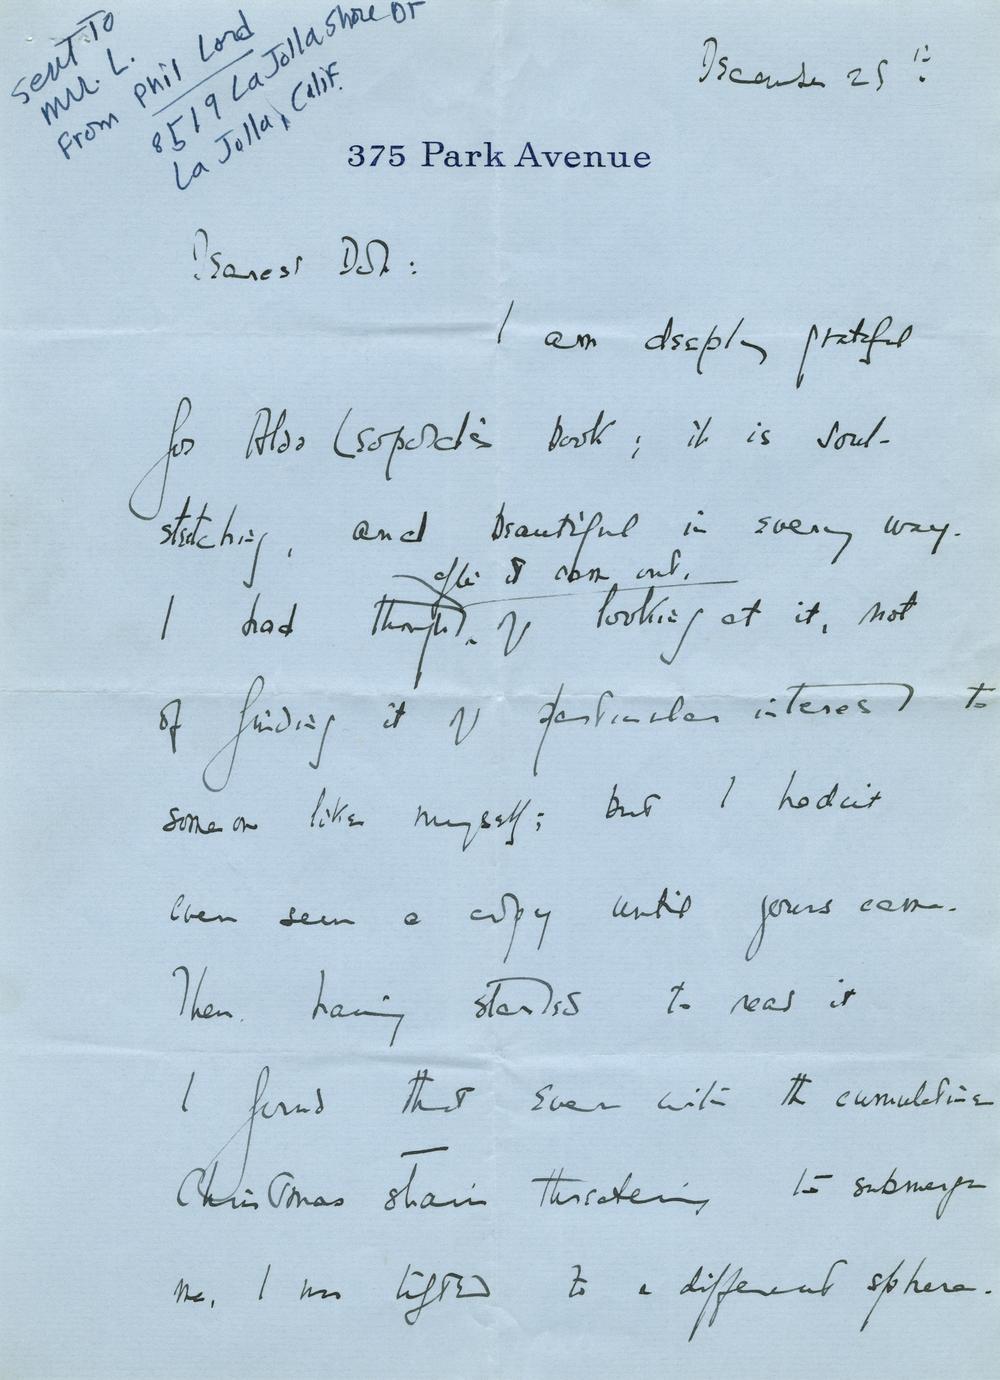 Sent To
Mr. L.
From Phil Lord
8519 La Jolla Shore Dr
La Jolla, Calif.
December 25th
375 Park Avenue
Dearest Dok:
I am deeply grateful
for Aldo Leopold's book; it is soul-
stretching, and beautiful in every way.
after it came out.
I had thought, of looking at it, not
of finding it of particular interest to
someone like myself; but I hadn't
even seen a copy until yours came.
Then, having started to read it
I found that even with the cumulative
Christmas strain threatening to submerge
me, I was lifted to a different sphere.